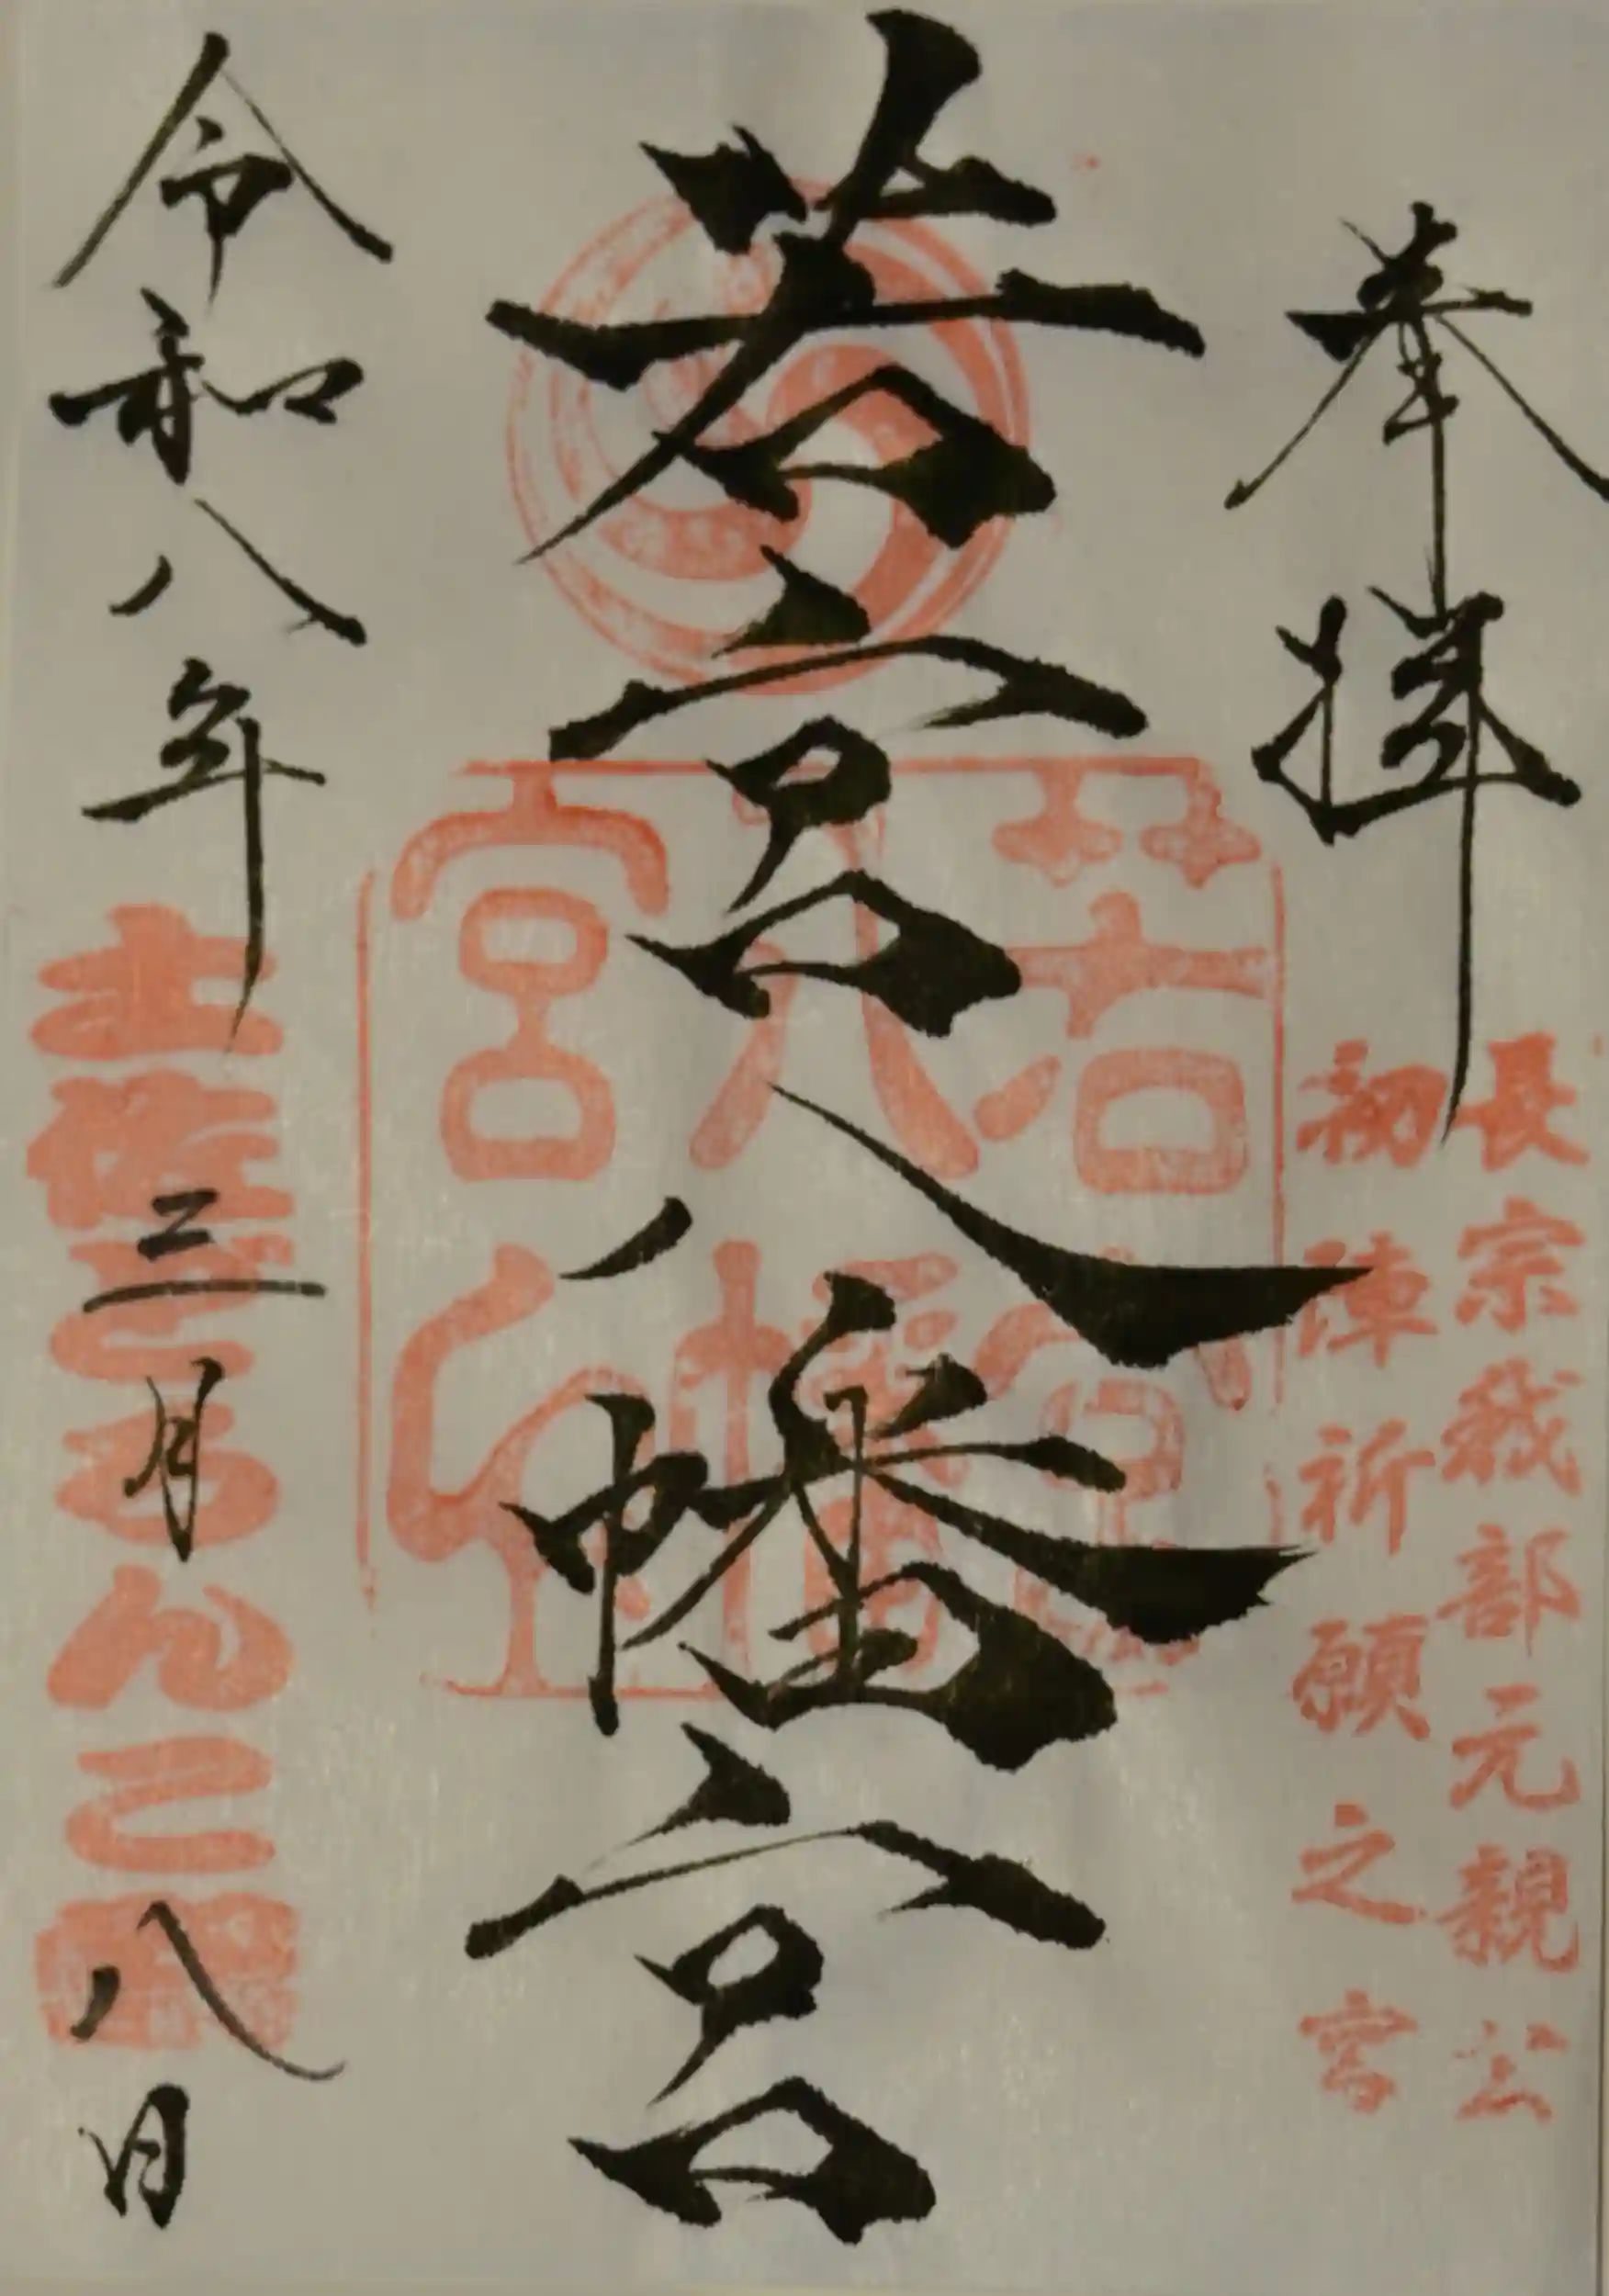 奉拝
長宗我部元親公
初陣祈願之宮
若宮八幡宮
若宮八幡宮
令和八年三月八日